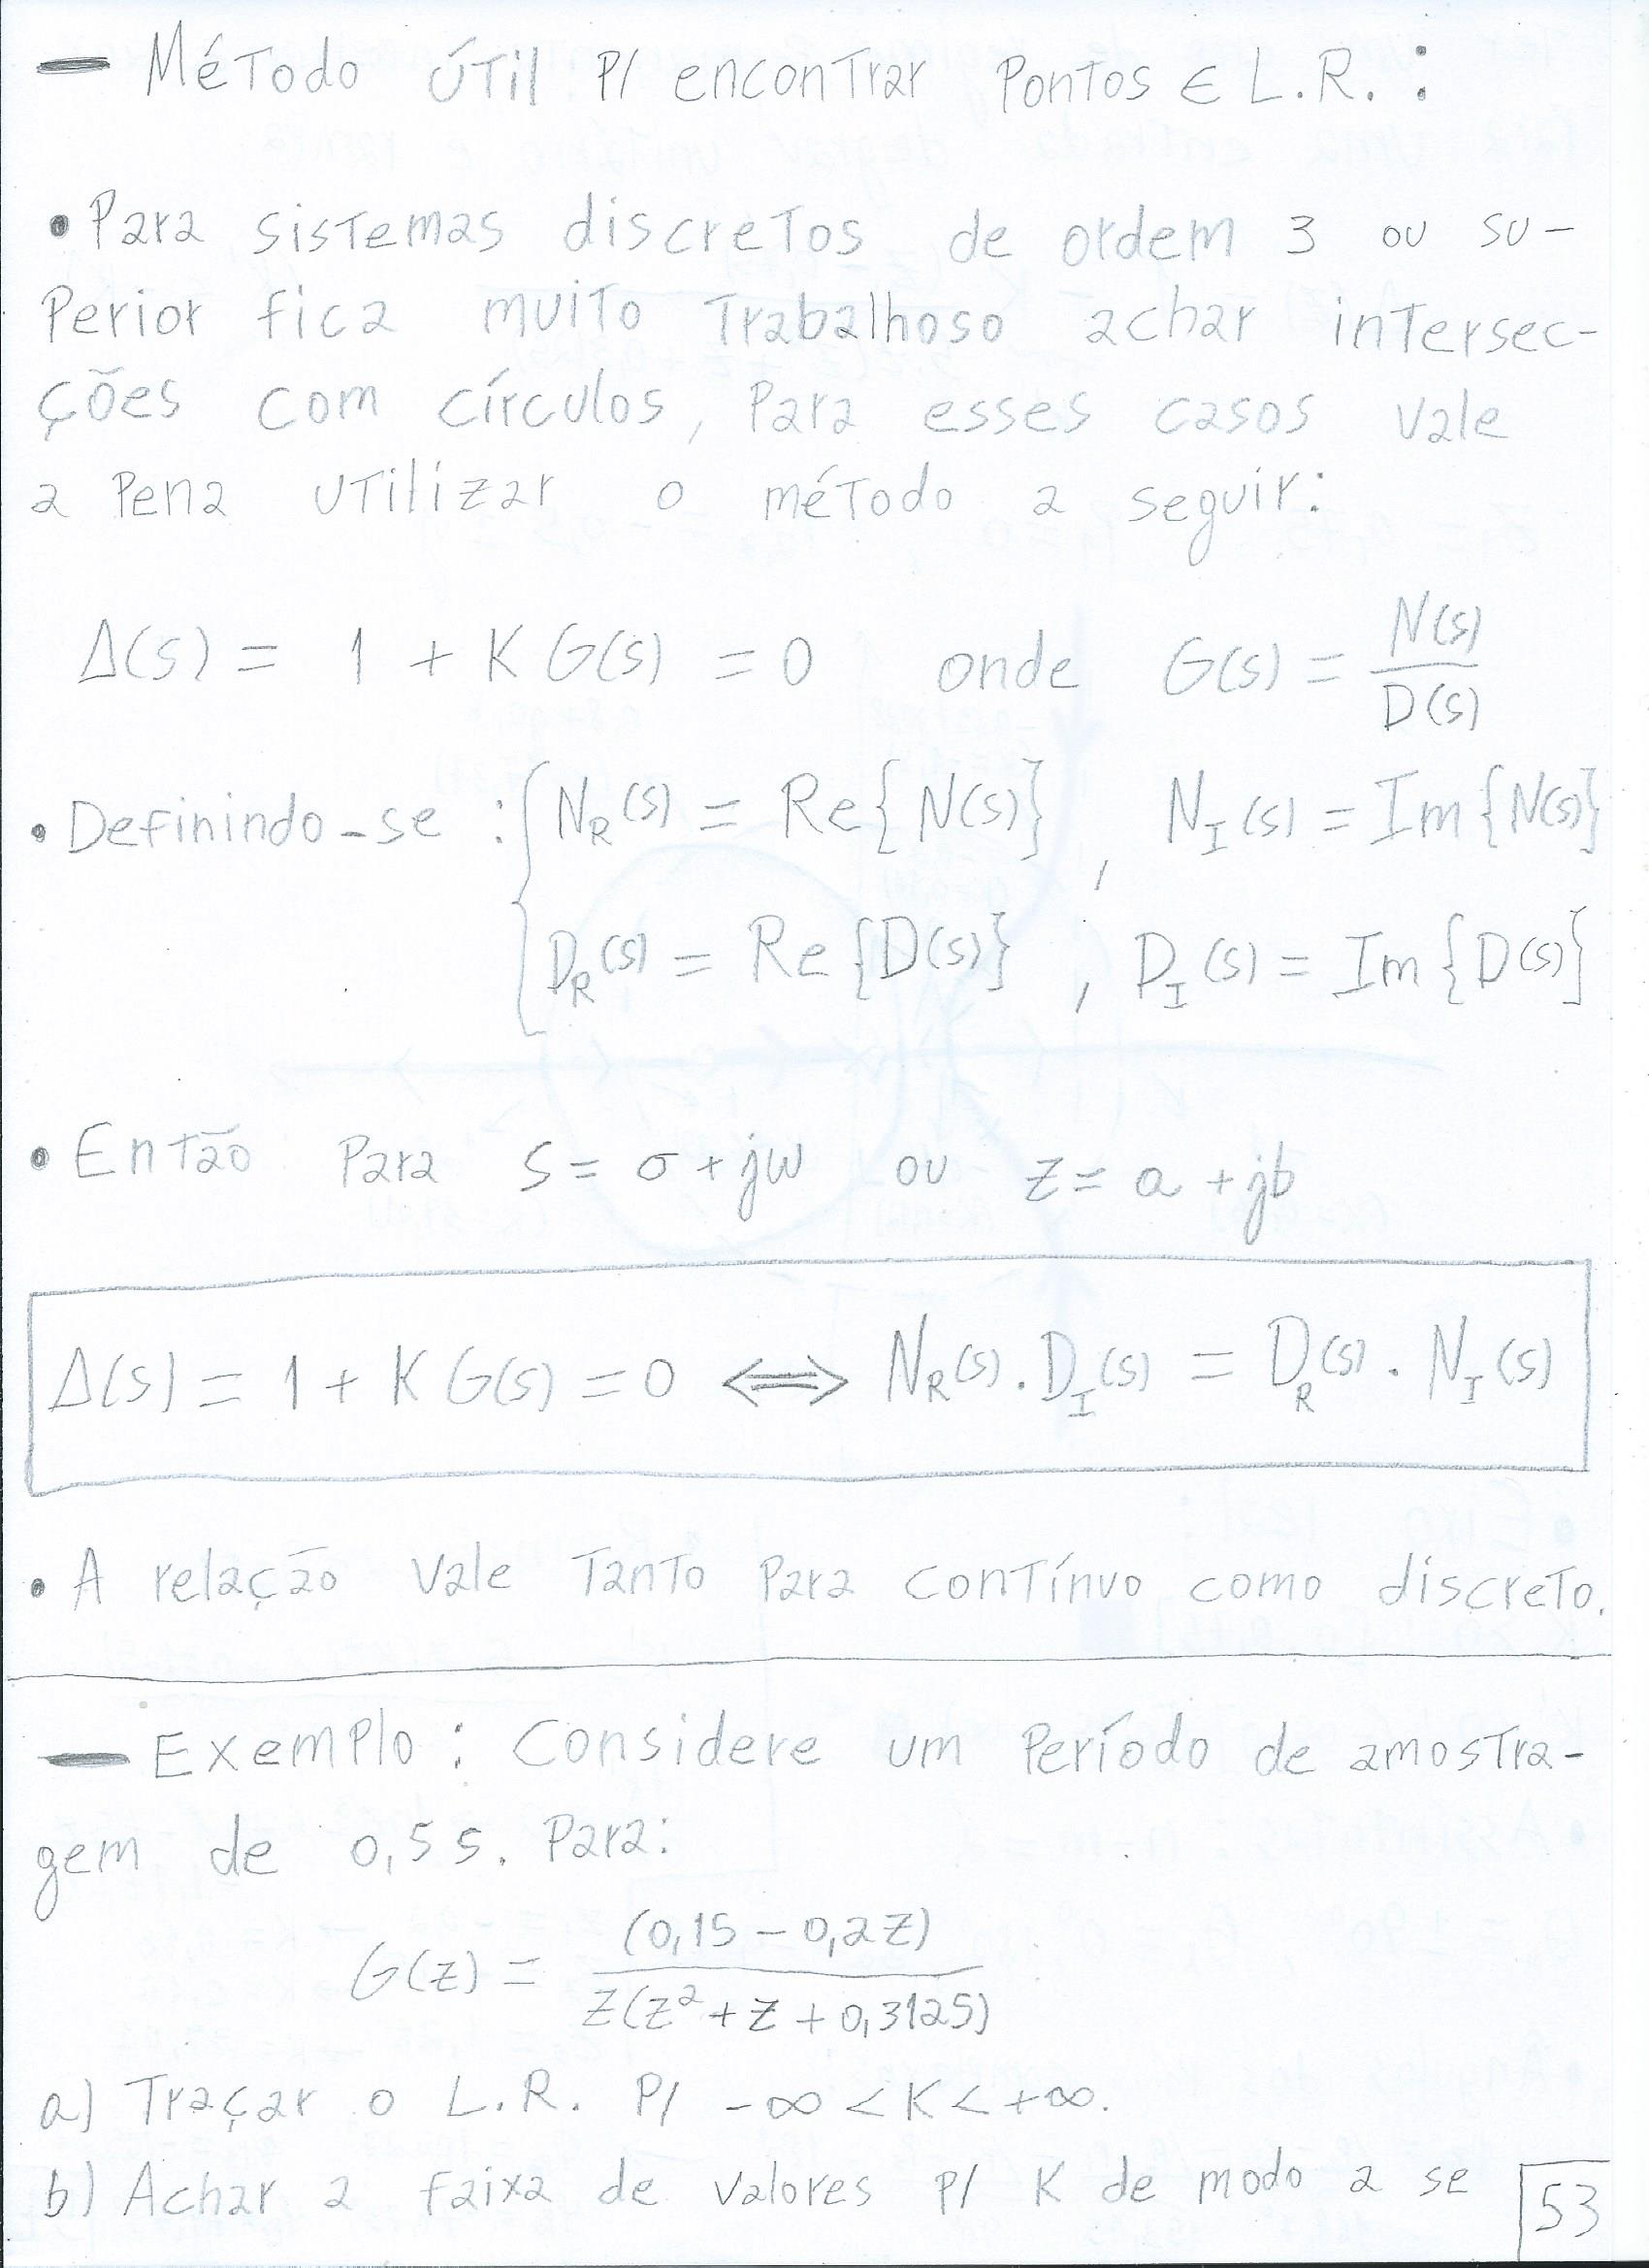 — Método útil p/ encontrar pontos ∈ L.R. :
• Para sistemas discretos de ordem 3 ou su-
perior fica muito trabalhoso achar intersec-
ções com círculos, para esses casos vale
a pena utilizar o método a seguir:
Δ(s) = 1 + K G(s) = 0 onde G(s) = N(s)/D(s)
• Definindo-se : { N_R(s) = Re{N(s)} , N_I(s) = Im{N(s)}
D_R(s) = Re{D(s)} ; D_I(s) = Im{D(s)}
• Então para s = σ + jω ou z = a + jb
Δ(s) = 1 + K G(s) = 0 ⟺ N_R(s) . D_I(s) = D_R(s) . N_I(s)
• A relação vale tanto para contínuo como discreto.
— Exemplo : Considere um período de amostra-
gem de 0,5 s. Para:
G(z) = (0,15 - 0,2z) / z(z² + z + 0,3125)
a) Traçar o L.R. p/ -∞ < K < +∞.
b) Achar a faixa de valores p/ K de modo a se
53